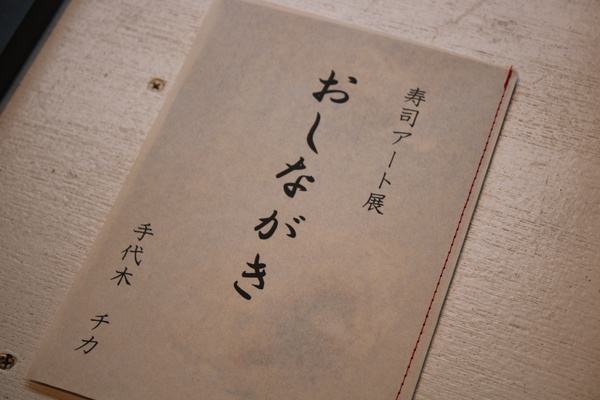 寿司アート展
おしながき
手代木 チカ